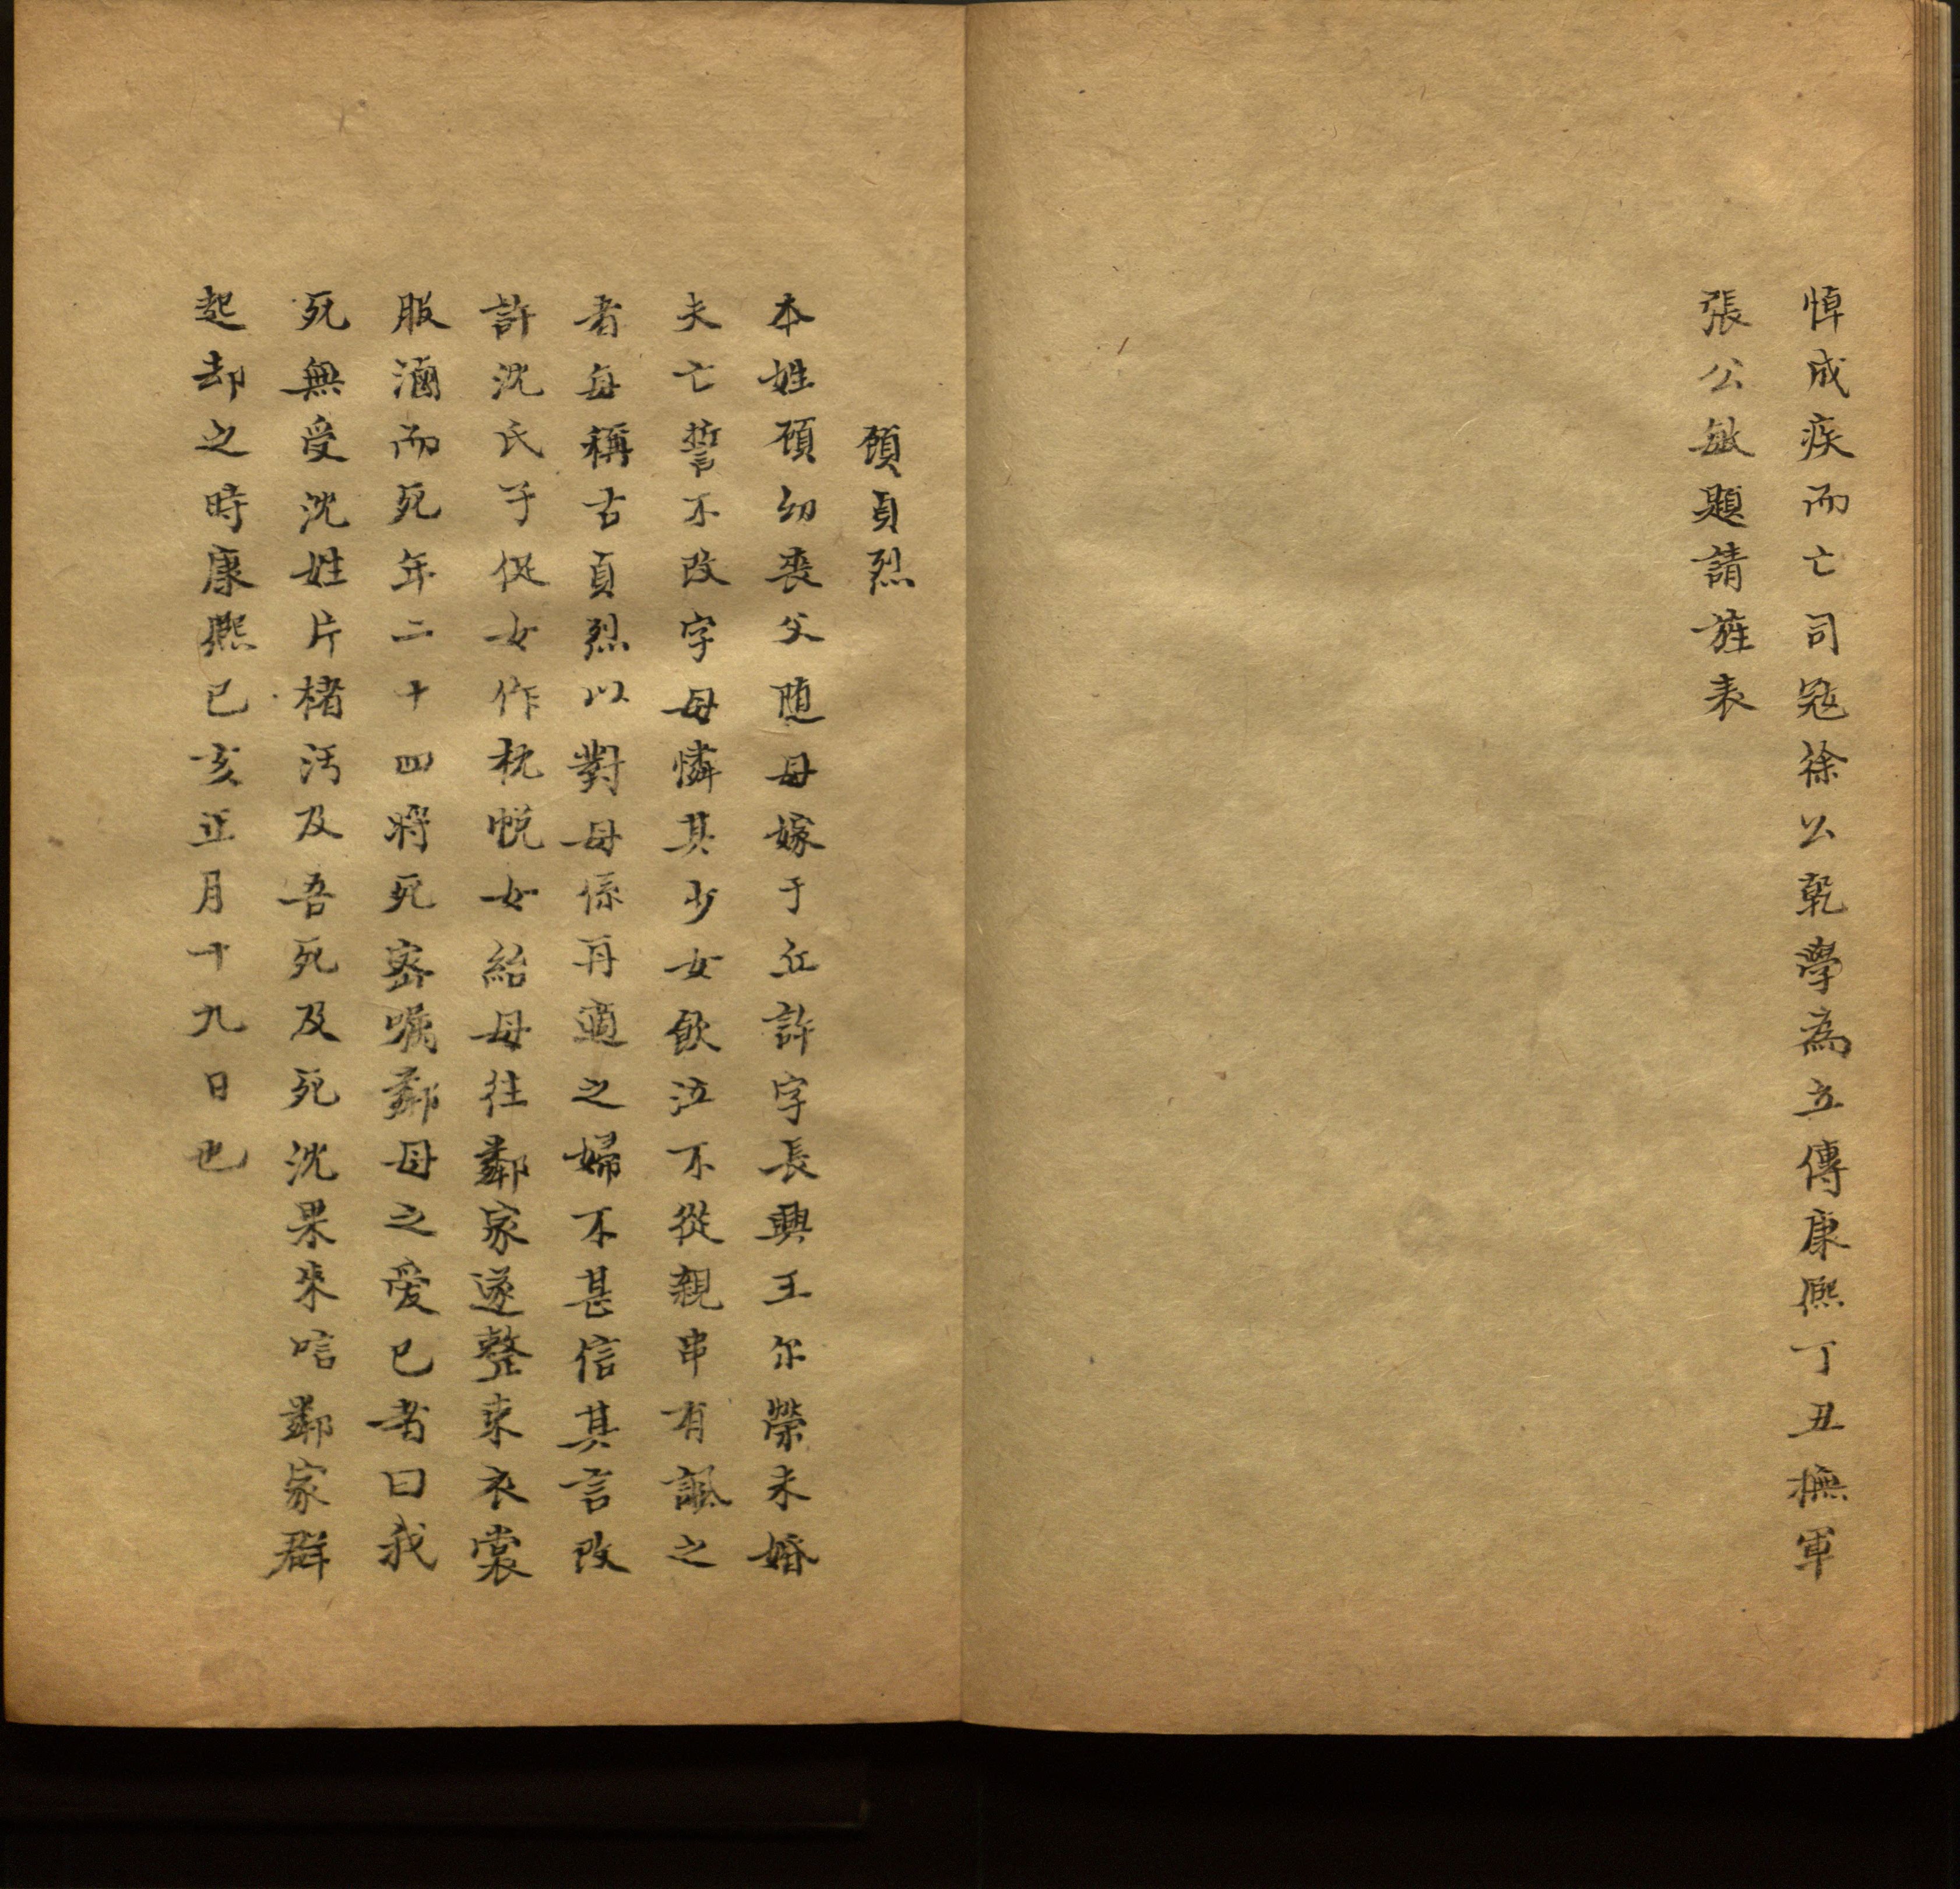 悼成疾而亡司冦徐公乾學為立傳康熙丁丑撫軍
張公敏題請旌表
顧貞烈
本姓顧幼喪父随母嫁于丘許字長興王尔榮未婚
夫亡誓不改字母憐其少女飲泣不從親串有諷之
者每稱古貞烈以對母係再適之婦不甚信其言改
許沈氏子促女作枕帨女紿母往鄰家遂整束衣裳
服滷而死年二十四將死密嘱鄰母之爱已者曰我
死無受沈姓片楮汚及吾死及死沈果来唁鄰家群
起却之時康熙已亥正月十九日也